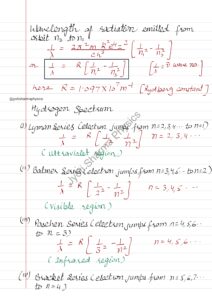 Wavelength of radiation emitted from
orbit n₂ to n₁
1/λ = 2π²mk²e⁴z²/ch³ [1/n₁² - 1/n₂²]
1/λ = R [1/n₁² - 1/n₂²] [1/λ = ν̄ wave no.]
here R = 1.097 × 10⁷ m⁻¹ [Rydberg constant]
Hydrogen Spectrum
(i) Lyman Series (electron jumps from n=2,3,4... to n=1)
1/λ = R [1/1² - 1/n²] n = 2,3,4...
(Ultraviolet region)
(ii) Balmer Series (electron jumps from n=3,4,5... to n=2)
1/λ = R [1/2² - 1/n²] n = 3,4,5...
(Visible region)
(iii) Paschen Series (electron jumps from n=4,5,6...
to n=3)
1/λ = R [1/3² - 1/n²] n = 4,5,6...
(Infrared region)
(iv) Bracket Series (electron jumps from n=5,6,7...
to n=4)